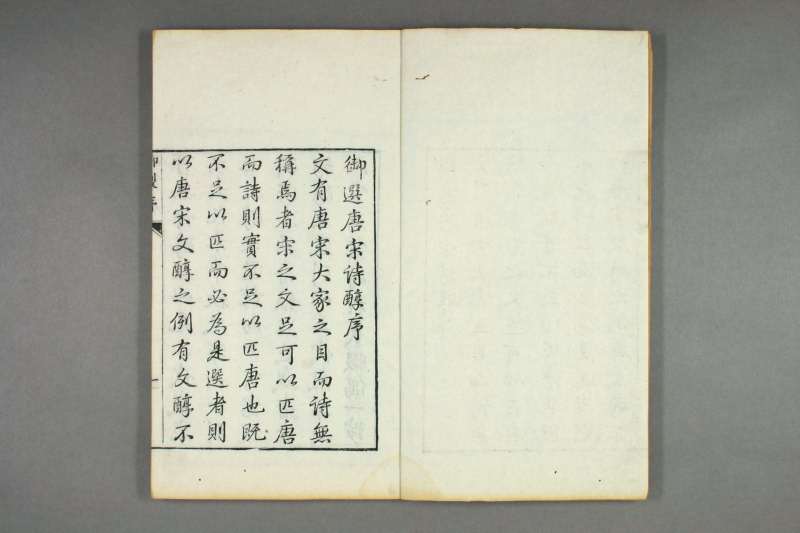 御選唐宋詩醇序
文有唐宋大家之目而詩無
稱焉者宋之文足可以匹唐
而詩則實不足以匹唐也既
不足以匹而必為是選者則
以唐宋文醇之例有文醇不